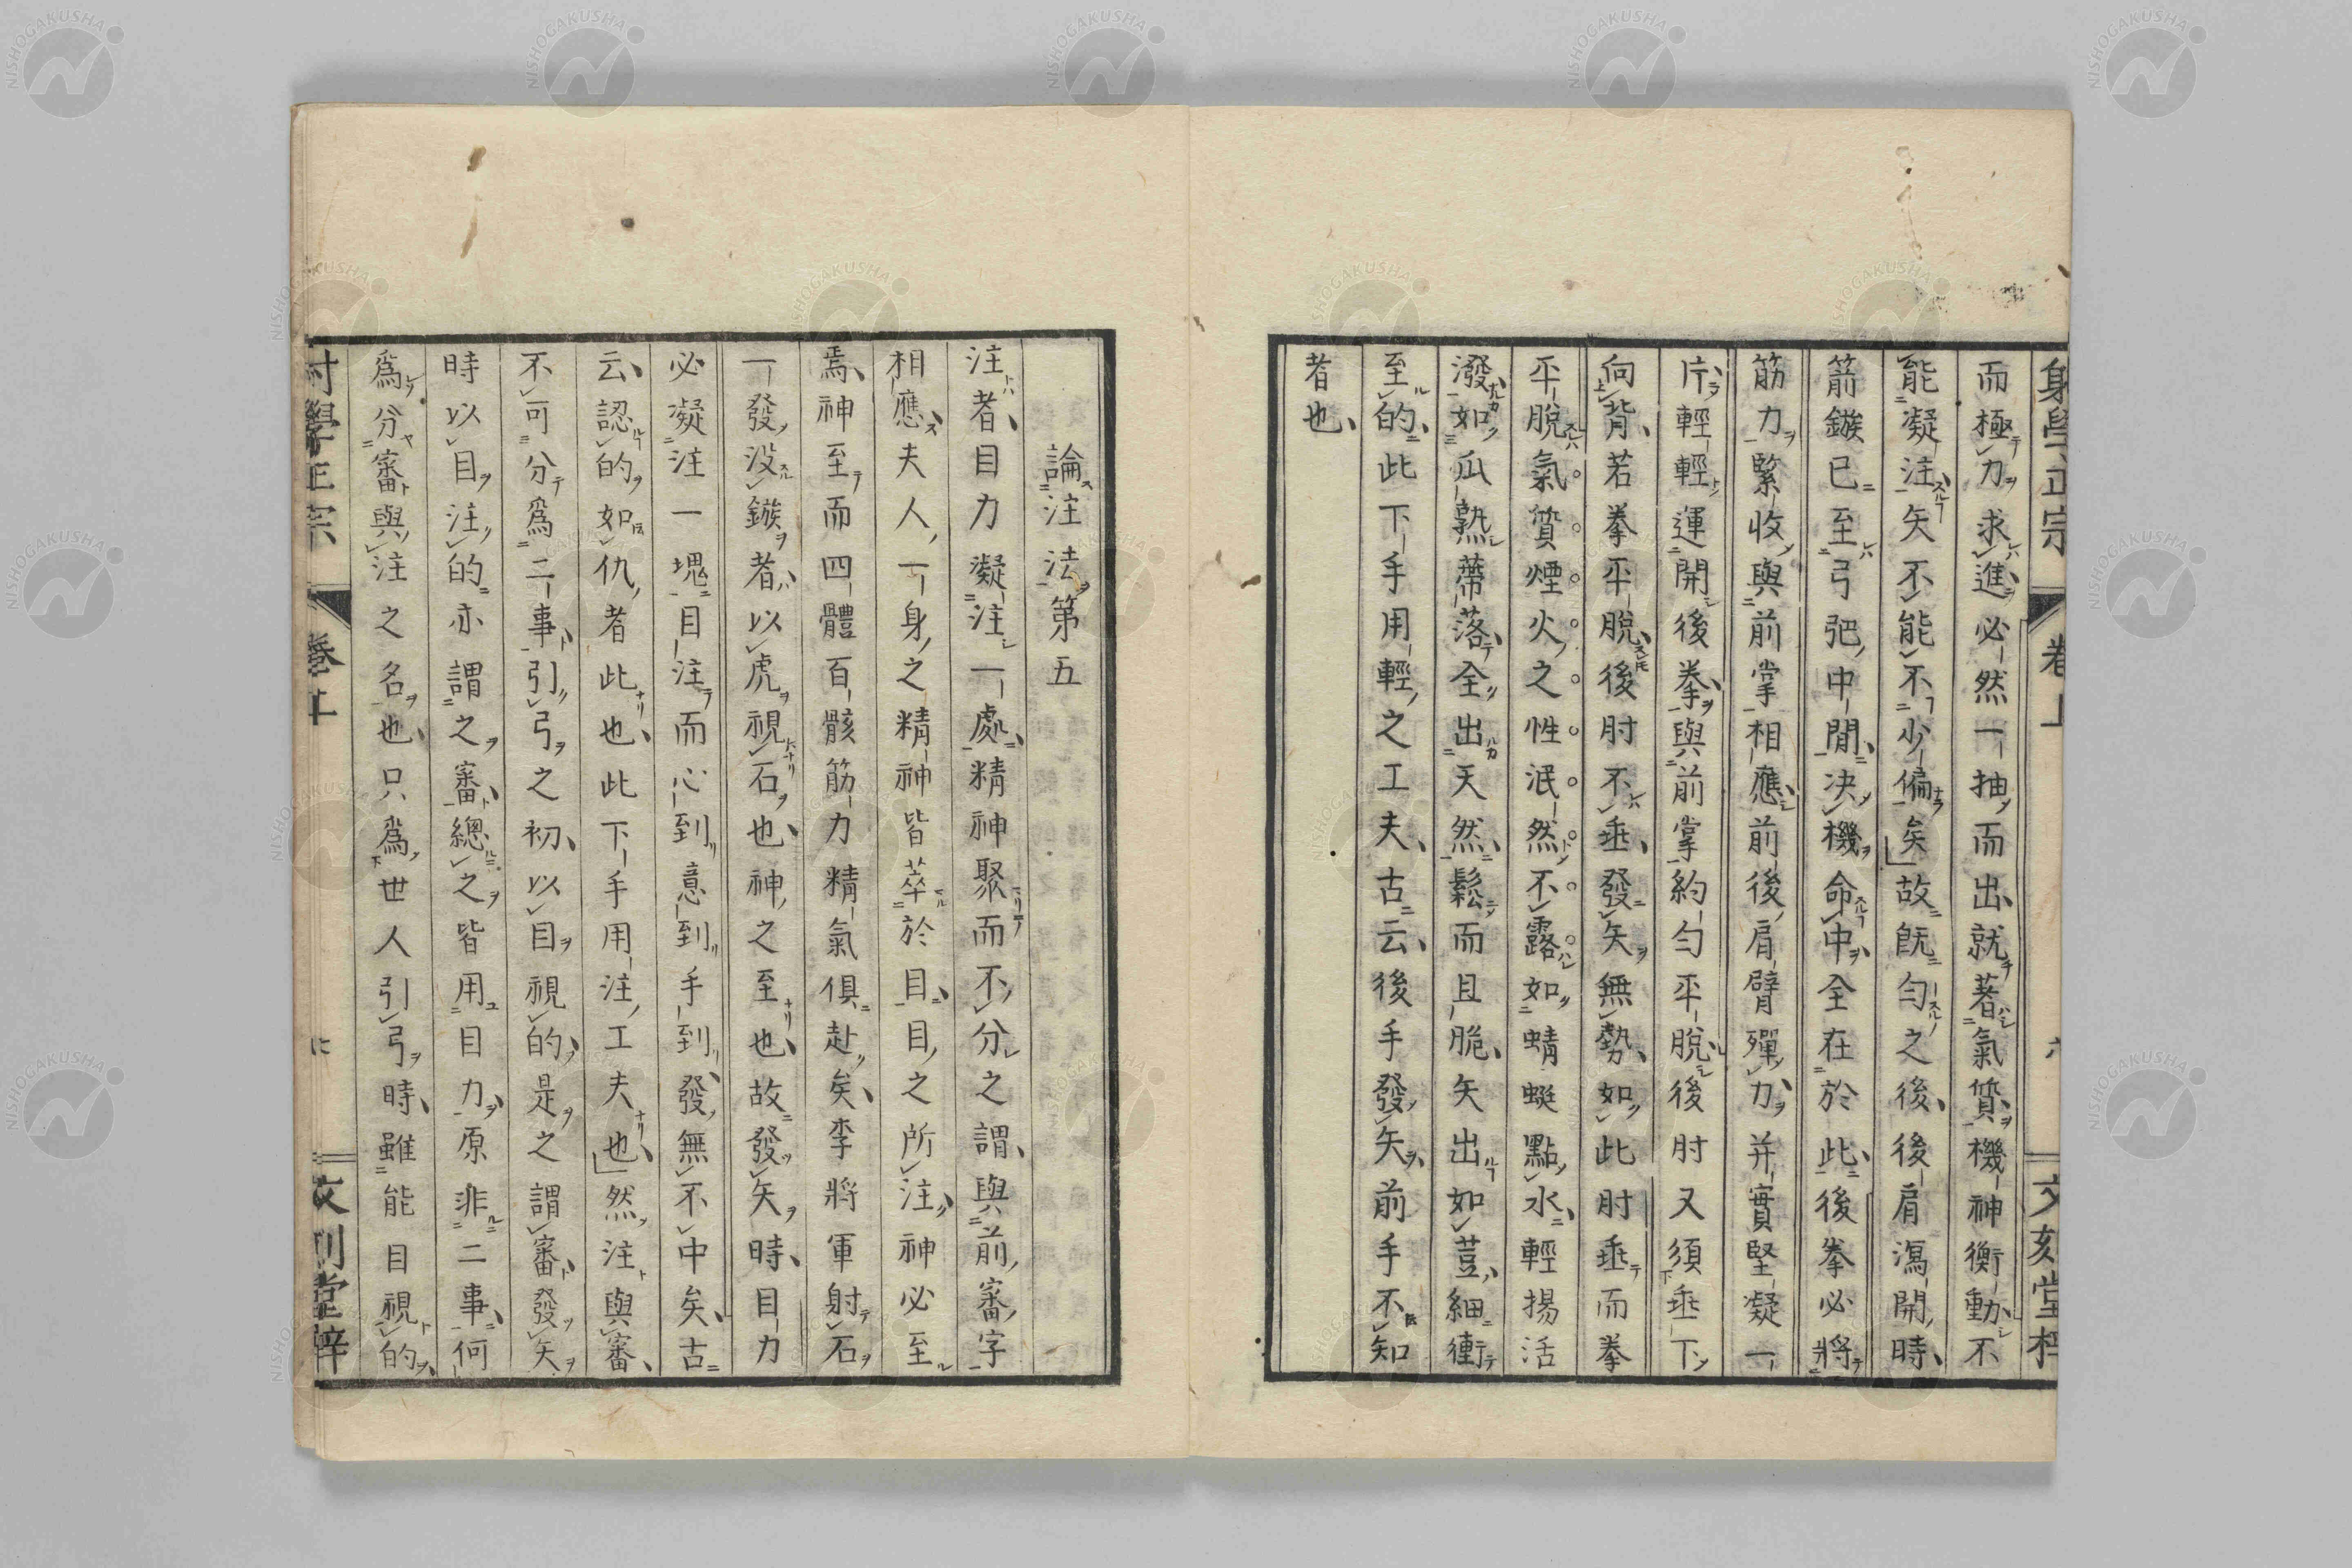 射學正宗 卷上 六 文刻堂梓
而極力求進必然一抽而出就著氣質機神衡動不
能凝注矢不能不少偏矣故旣勻之後後肩瀉開時
箭鏃已至弓弝中間決機命中全在於此後拳必將
筋力緊收與前掌相應前後肩臂殫力并實堅凝一
片輕輕運開後拳與前掌約勻平脫後肘又須垂下
向背若拳平脫後肘不垂發矢無勢如此肘垂而拳
平脫氣質煙火之性泯然不露如蜻蜓點水輕揚活
潑如瓜熟蒂落全出天然鬆而且脆矢出如荳細衝
至的此下手用輕之工夫古云後手發矢前手不知
者也
論注法第五
注者目力凝注一處精神聚而不分之謂與前審字
相應夫人一身之精神皆萃於目目之所注神必至
焉神至而四體百骸筋力精氣俱赴矣李將軍射石
一發没鏃者以虎視石也神之至也故發矢時目力
必凝注一塊目注而心到意到手到發無不中矣古
云認的如仇者此也此下手用注工夫也然注與審
不可分爲二事引弓之初以目視的是之謂審發矢
時以目注的亦謂之審總之皆用目力原非二事何
爲分審與注之名也只爲世人引弓時雖能目視的
射學正宗 卷上 七 文刻堂梓
NISHOGAKUSHA